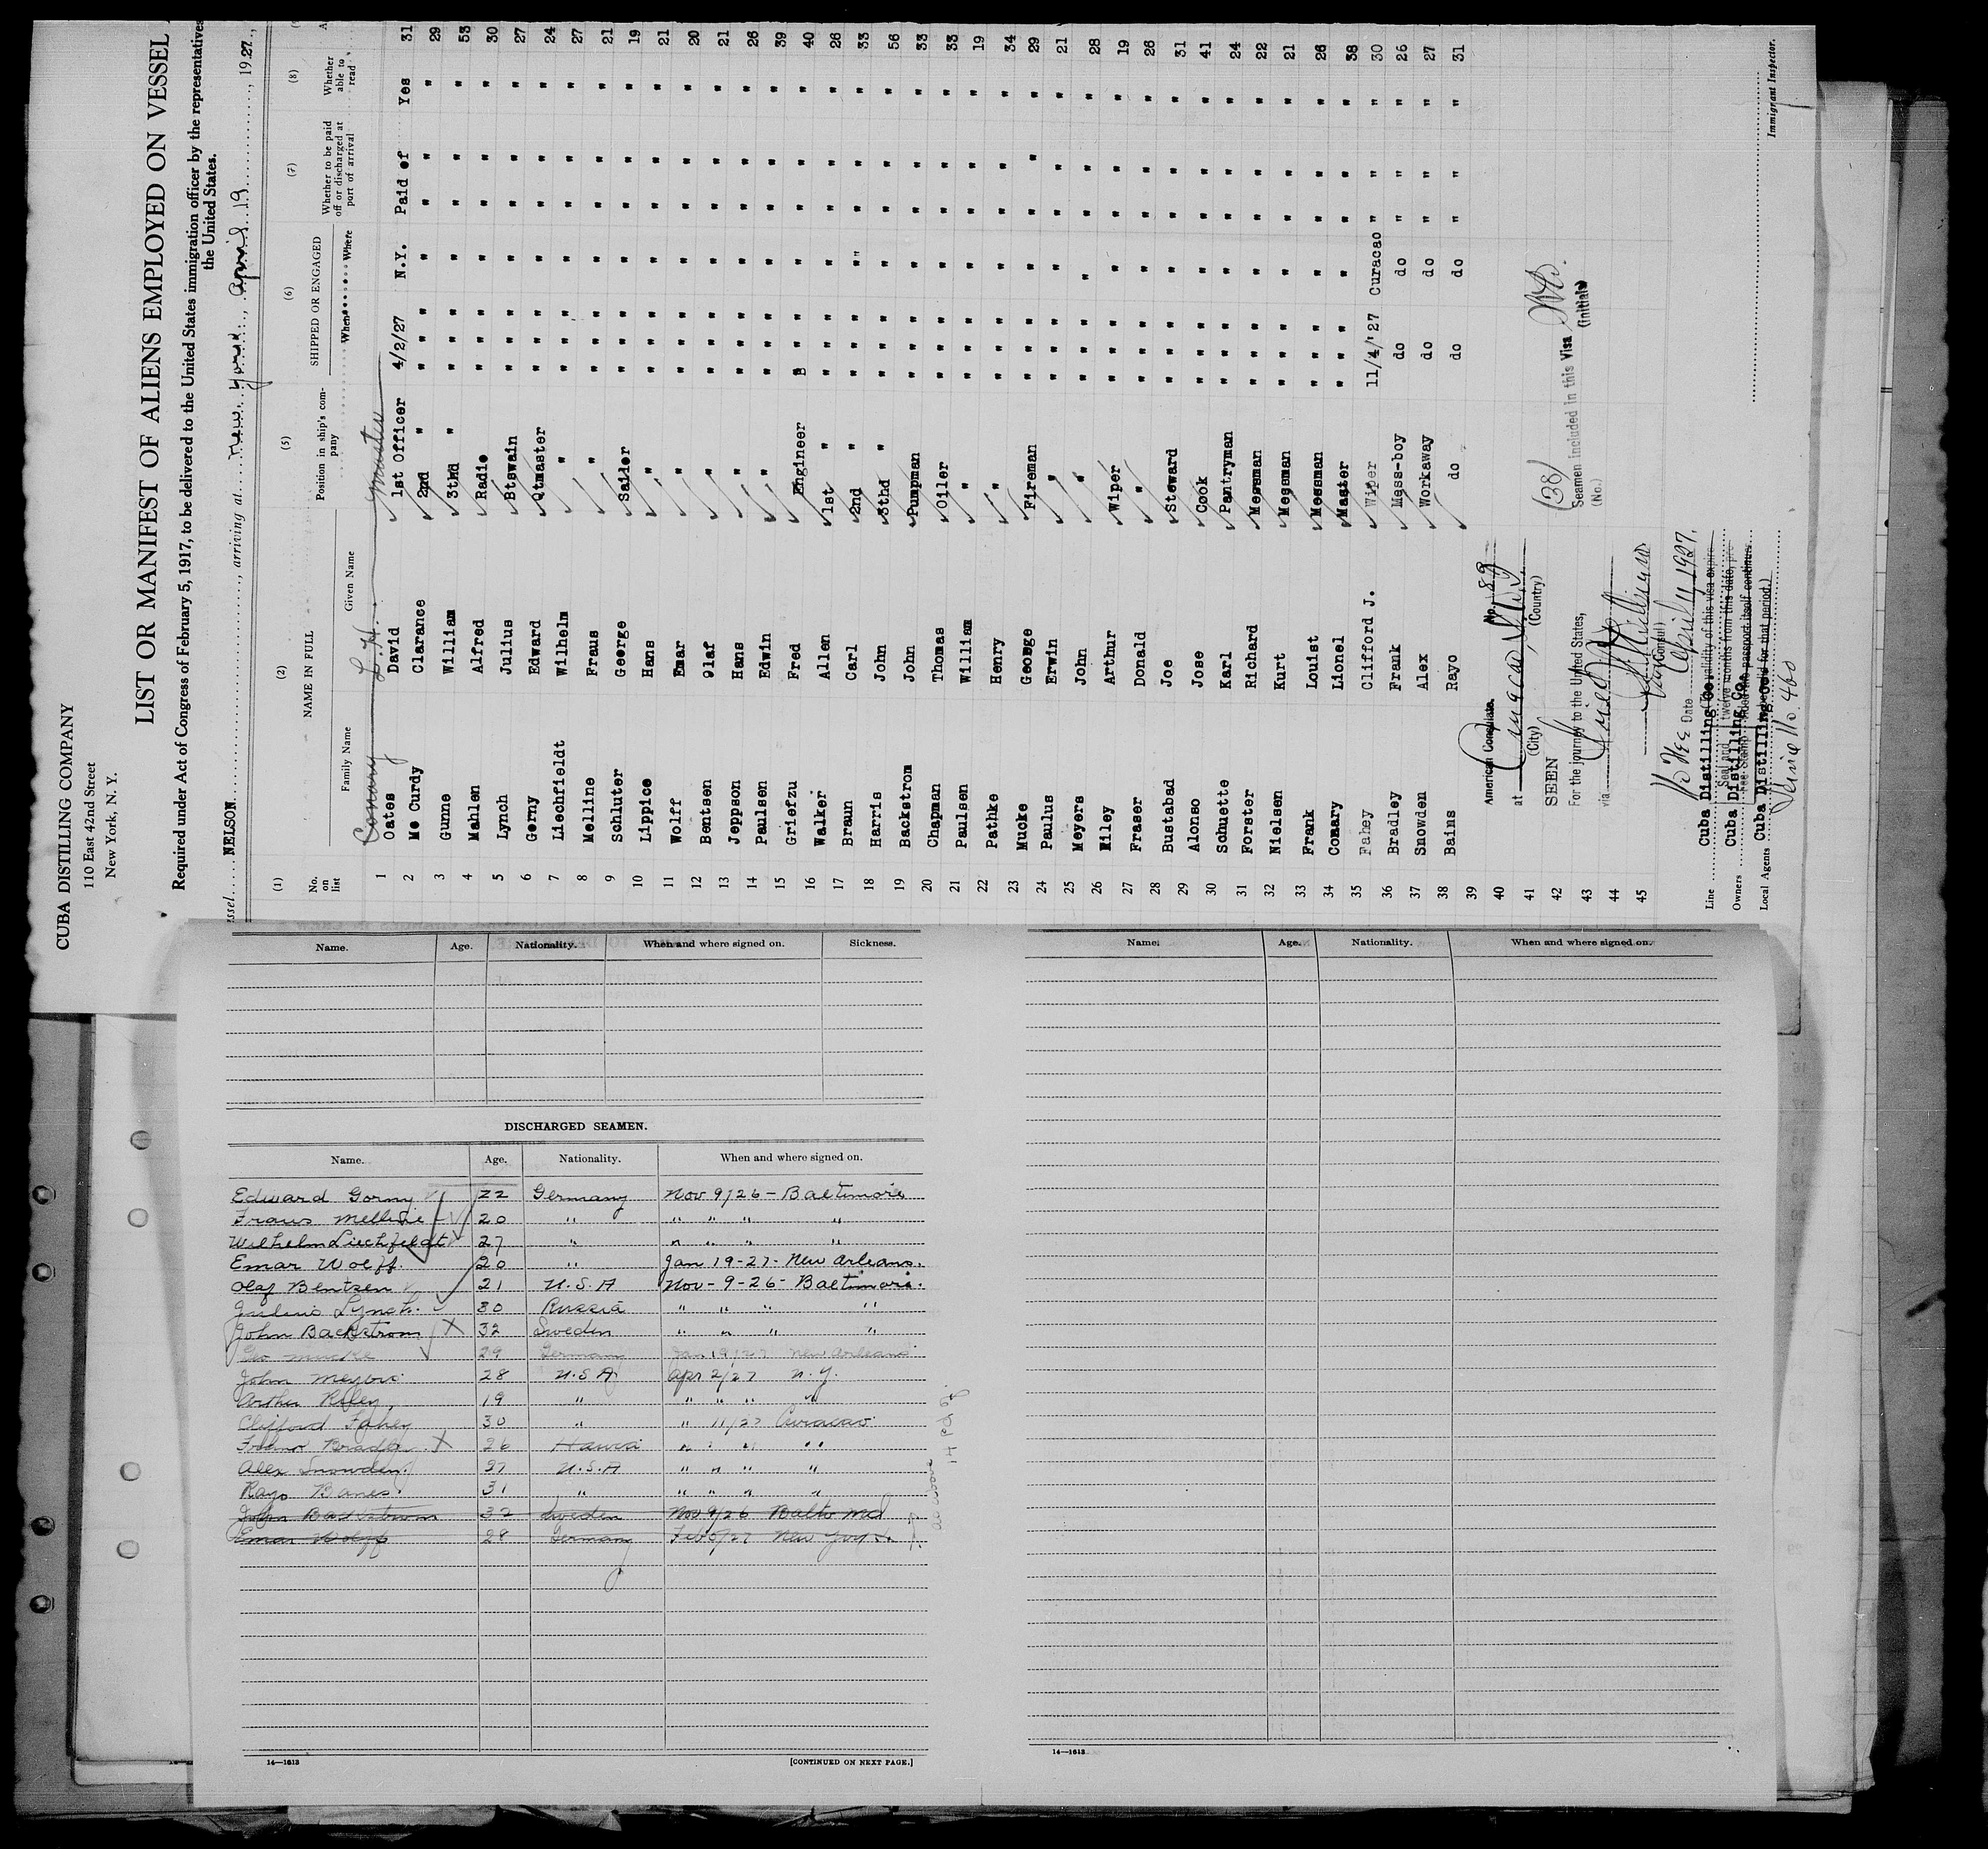 CUBA DISTILLING COMPANY
110 East 42nd Street
New York, N. Y.
LIST OR MANIFEST OF ALIENS EMPLOYED ON VESSEL
Required under Act of Congress of February 5, 1917, to be delivered to the United States immigration officer by the representatives
the United States.
NELSON, arriving at New York, April 19, 1927,
(1) (2) (5) (6) (7) (8)
No. on list NAME IN FULL Position in ship's company SHIPPED OR ENGAGED Whether to be paid off or discharged at port of arrival Whether able to read
Family Name Given Name When Where
1 Conary L.H. Master
Oates David 1st Officer 4/2/27 N.Y. Paid of Yes 31
2 Mc Curdy Clarance 2nd " " " " " " " " 29
3 Gunne William 3thd " " " " " " " " 53
4 Mahlen Alfred Radio " " " " " " " 30
5 Lynch Julius Btswain " " " " " " " 27
6 Gerny Edward Qtmaster " " " " " " " 24
7 Liechfieldt Wilhelm " " " " " " " " 27
8 Melline Fraus " " " " " " " " 21
9 Schluter George Sailer " " " " " " " 19
10 Lippice Hans " " " " " " " " 21
11 Wolff Emar " " " " " " " " 20
12 Bentsen Olaf " " " " " " " " 21
13 Jeppson Hans " " " " " " " " 26
14 Paulsen Edwin " " " " " " " " 39
15 Griefzu Fred Engineer " " " " " " 40
16 Walker Allen 1st " " " " " " " " 26
17 Braun Carl 2nd " " " " " " " " 33
18 Harris John 3thd " " " " " " " " 56
19 Backstrom John Pumpman " " " " " " " 33
20 Chapman Thomas Oiler " " " " " " " 33
21 Paulsen William " " " " " " " " 19
22 Pathke Henry " " " " " " " " 34
23 Mucke George Fireman " " " " " " " 29
24 Paulus Erwin " " " " " " " " 21
25 Meyers John " " " " " " " " 28
26 Riley Arthur Wiper " " " " " " " 19
27 Fraser Donald " " " " " " " " 26
28 Bustabad Joe Steward " " " " " " " 31
29 Alonso Jose Cook " " " " " " " 41
30 Schuette Karl Pantryman " " " " " " " 24
31 Forster Richard Messman " " " " " " " 22
32 Nielsen Kurt Messman " " " " " " " 21
33 Frank Louist Messman " " " " " " " 26
34 Conary Lionel Master " " " " " " " 38
35 Fahey Clifford J. Wiper 11/4/'27 Curacao " " " 30
36 Bradley Frank Mess-boy do do " " " 26
37 Snowden Alex Workaway do do " " " 27
38 Bains Rayo do do do " " " 31
39
40
41
42
43
44
45
American Consulate. No. 89
at Curacao, D.W.I.
(City) (Country)
SEEN
For the journey to the United States,
via
Consul
No Fee Date April 11, 1927.
(38)
Seamen included in this Visa
(No.) (initials)
Line Cuba Distilling Co.
Owners Cuba Distilling Co.
Local Agents Cuba Distilling Co.
Service No. 460
Immigrant Inspector.
Name. Age. Nationality. When and where signed on. Sickness.
Name. Age. Nationality. When and where signed on.
DISCHARGED SEAMEN.
Name. Age. Nationality. When and where signed on.
Edward Gorny 22 Germany Nov 9/26 - Baltimore
Fraus Melline 20 " " " " "
Wilhelm Liechfeldt 27 " " " " "
Emar Wolff. 20 " Jan 19-27- New Orleans.
Olaf Bentzen 21 U.S.A Nov - 9-26- Baltimore.
Julius Lynch. 30 Russia " " " "
John Backstrom X 32 Sweden " " " "
Geo Mucke 29 Germany Jan 19/27 New Orleans
John Meyers 28 U.S.A Apr 2/27 N.Y.
Arthur Riley, 19 " " " " "
Clifford Fahey 30 " " 11/27 Curacao
Frank Bradley X 26 Hawai " " " "
Alex Snowden. 27 U.S.A " " " "
Rayo Banes. 31 " " " " "
John Backstrom 32 Sweden Nov 9/26 Balto Md
Emar Wolff 28 Germany Feb 5/27 New York
14—1613 [CONTINUED ON NEXT PAGE.]
14—1613